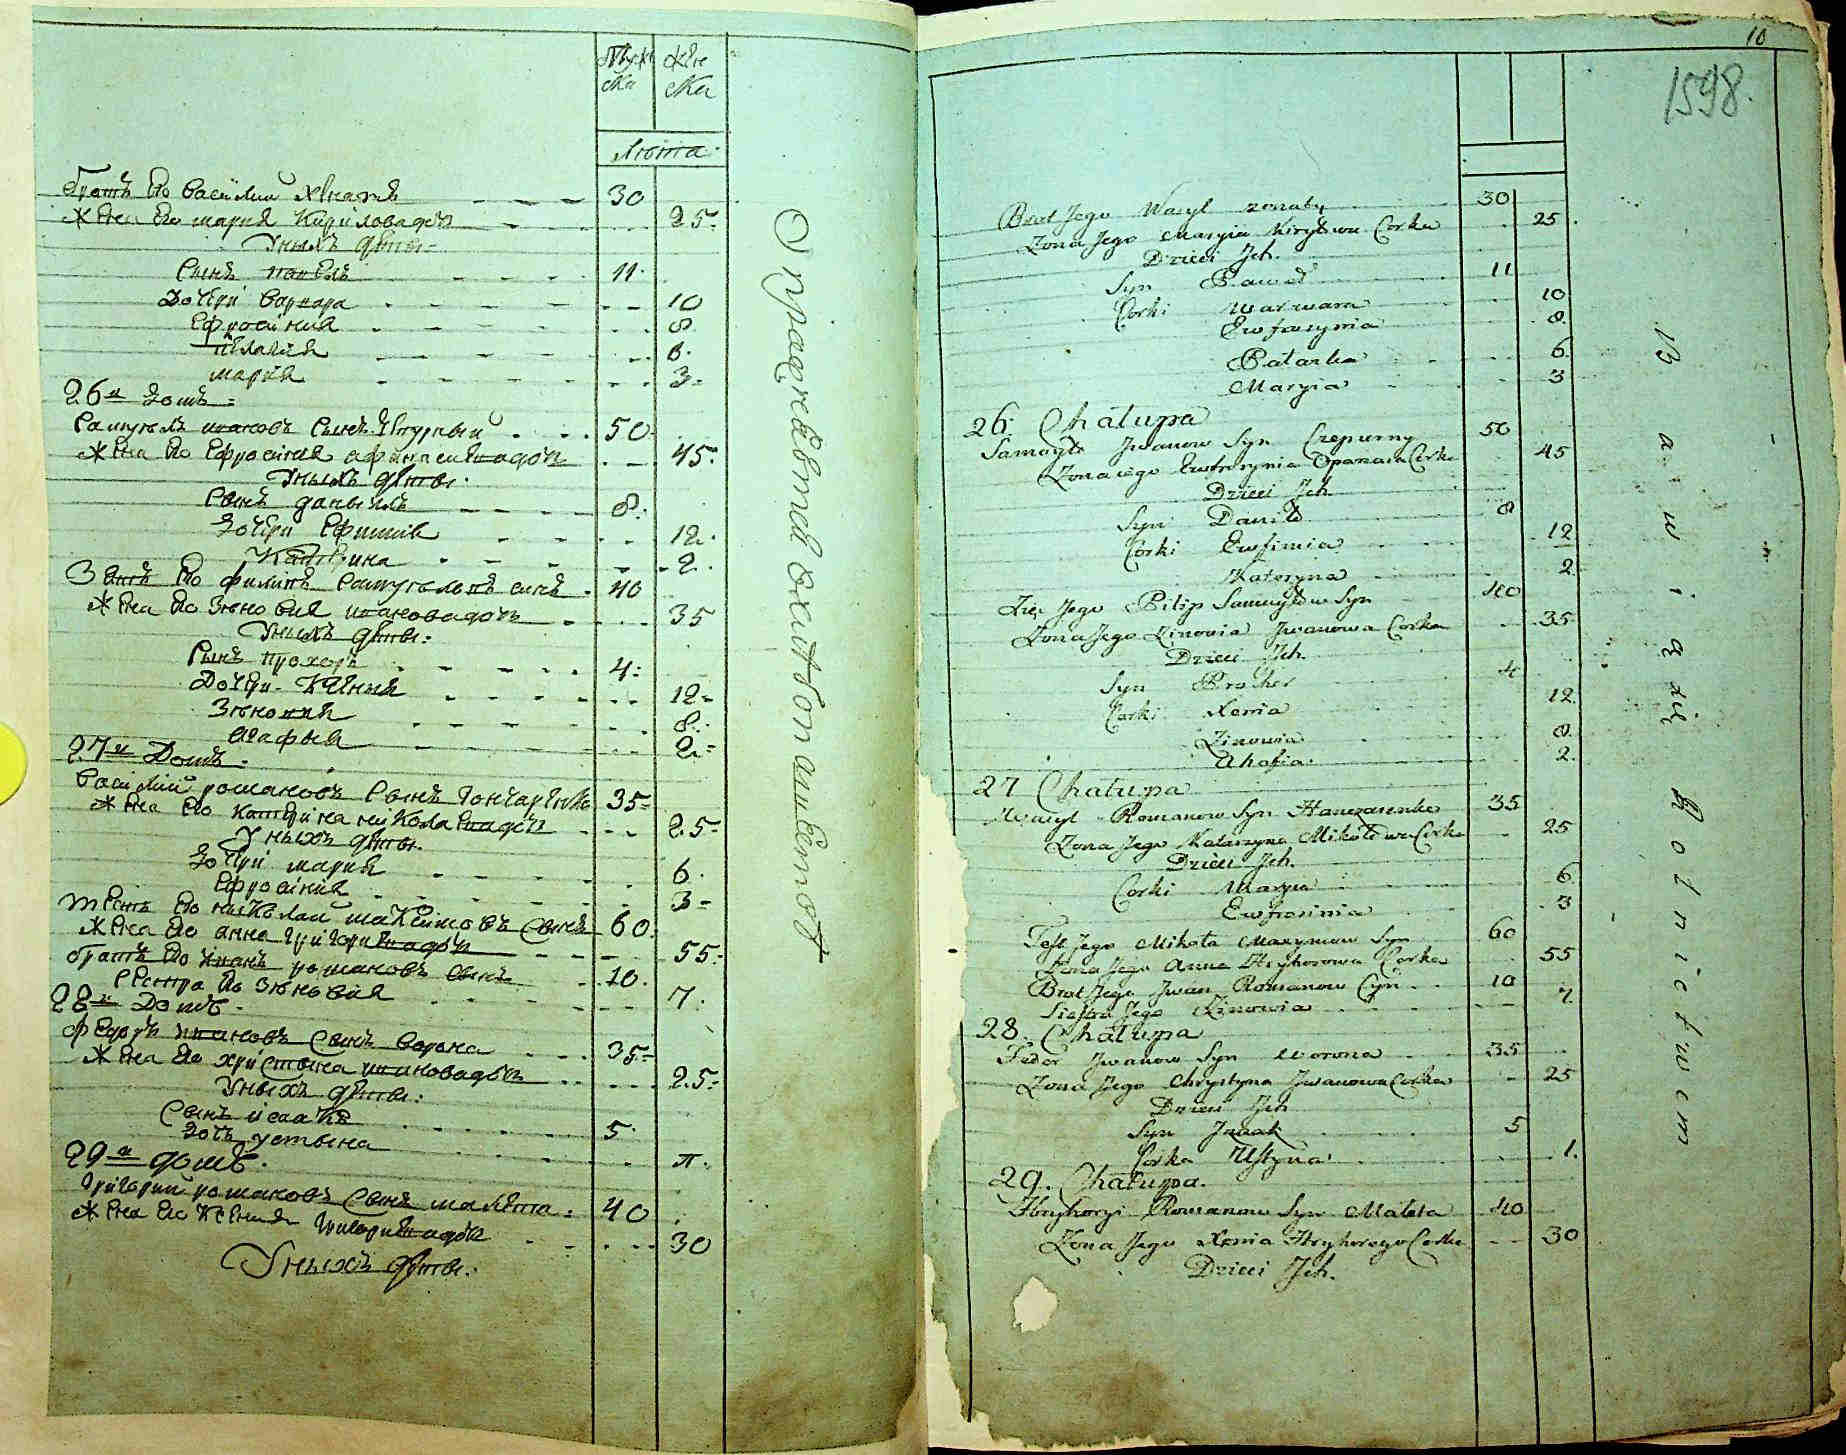 Мужска
Женска
Лѣта
братъ его василий женатъ 30
жена его мария Кириловадочъ 25
Унихъ дѣти
Сынъ павелъ 11
Дочери варвара 10
Ефросиния 8
пелагия 6
мария 3
26й домъ
Самуилъ ивановъ сынъ Чепурный 50
жена его Ефросиния афанасиевадочъ 45
Унихъ дѣти
Сынъ данылъ 8
дочери Ефимия 12
Катерина 2
Зять его филипъ самуиловъ синъ 40
жена его Зѣновия ивановадочъ 35
Унихъ дѣти
Сынъ прохоръ 4
Дочери Ксения 12
Зѣновия 8
агафия 2
27й Домъ
василий романовъ сынъ Гончаренко 35
жена его Катерина николаевадочъ 25
Унихъ дѣти
дочери мария 6
Ефросиния 3
тесть его николай макسимовъ сынъ 60
жена его анна григориевадочъ 55
братъ его иванъ романовъ сынъ 10
сестра его зѣновия 7
28й Домъ
федоръ ивановъ сынъ ворона 35
жена его христина ивановадочъ 25
Унихъ дѣти
Сынъ исаакъ 5
дочъ устина
29й домъ
григорий романовъ сынъ малета 40
жена его Ксения григориевадочъ 30
Унихъ дѣти
Упражняется в хлебопашестве
10
1598.
Brat Jego Wasyl zonaty 30
Zona Jego Maryia Kiryłowa Corka 25
Dzieci Jch.
Syn Paweł 11
Corki Warwara 10
Ewfrasynia 8
Pałarka 6
Maryia 3
26. Chałupa
Samoyło Jwanow Syn Czepurny 50
Zona iego Ewfrosynia Opanasa Corka 45
Dzieci Jch
Syn Daniło 8
Corki Ewfimia 12
Kateryna 2
Zięć Jego Pilip Samuyłow Syn 40
Zona Jego Zinowia Jwanowa Corka 35
Dzieci Jch.
Syn Prohor 4
Corki Xenia 12
Zinowia 8
Ahafia 2
27 Chałupa
Wasyl Romanow Syn Hanczarenko 35
Zona Jego Katarzyna Mikołowa Corka 25
Dzieci Jch.
Corki Marya 6
Ewfrosinia 3
Teść Jego Mikoła Maxymow Syn 60
Zona Jego Anna Hryhorowa Corka 55
Brat Jego Jwan Romanow Syn 10
Siostra Jego Zinowia 7
28. Chałupa
Fedor Jwanow Syn Worona 35
Zona Jego Chrystyna Jwanowa Corka 25
Dzieci Jch
Syn Jsaak 5
Corka Ustyna 1
29. Chałupa
Hryhoryi Romanow Syn Maleta 40
Zona Jego Xenia Hryhorego Corka 30
Dzieci Jch.
Bawią się Rolnictwem